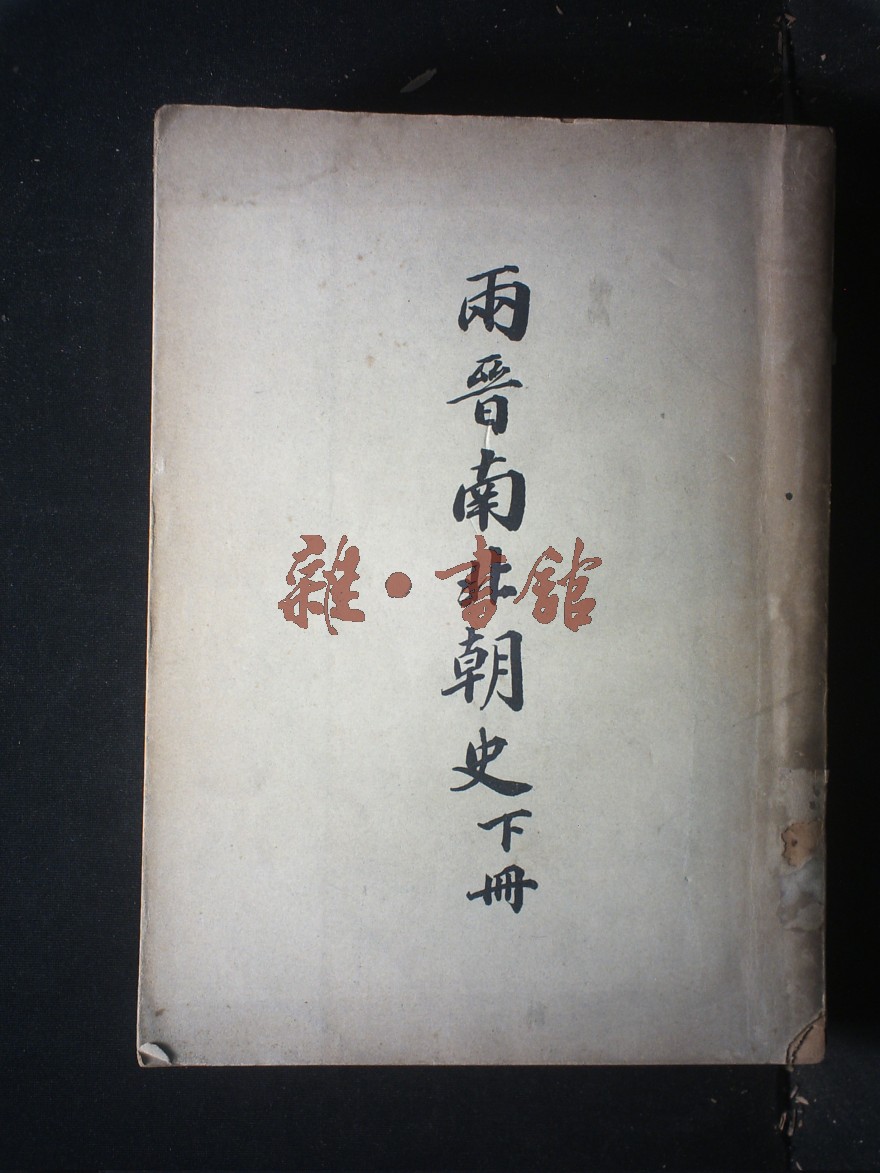 兩晉南北朝史下冊
雜·書館